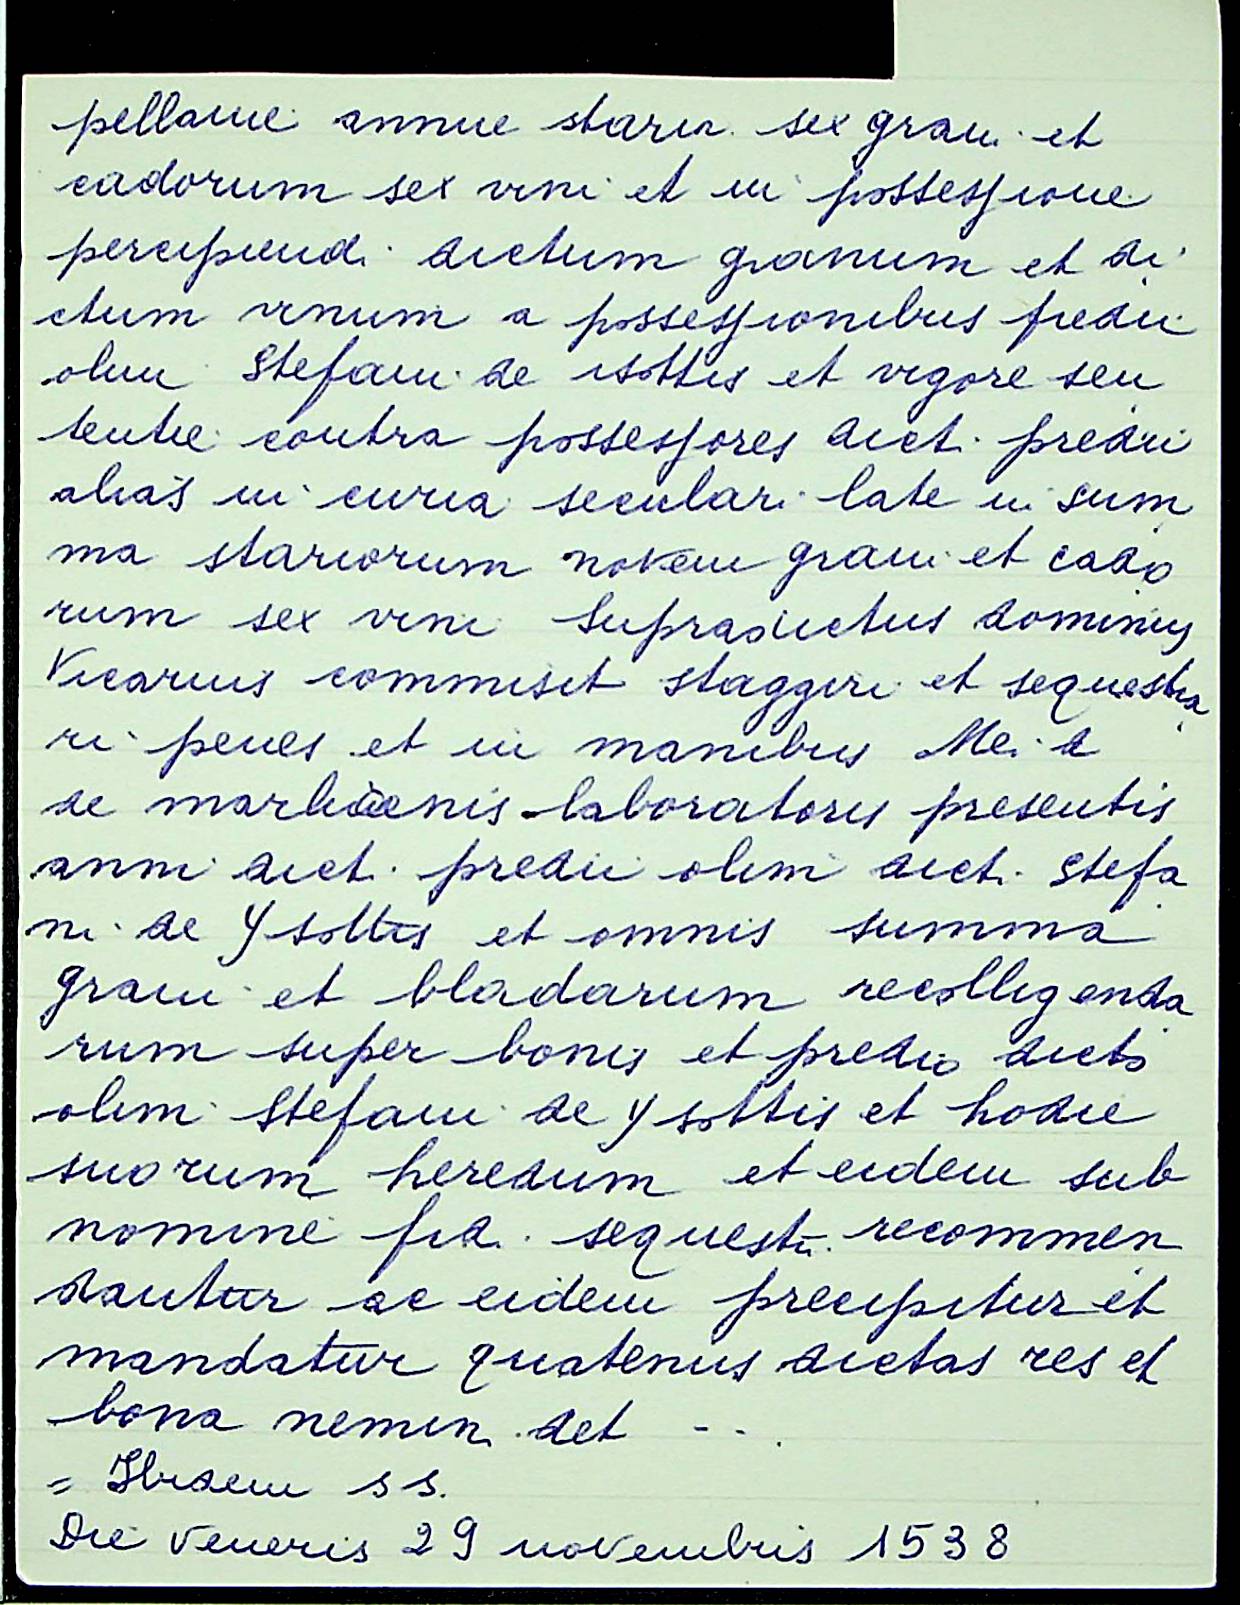 pellanie annue staria sex grani et
cadorum sex vini et in possessione
percipiendi dictum granum et di
ctum vinum a possessionibus predii
olim Stefani de isottis et vigore sen
tentie contra possessores dict. predii
alias in curia seculari late in sum
ma stariorum novem grani et cado
rum sex vini supradictus dominus
Vicarius commisit staggiri et sequestra
ri penes et in manibus Mei. d
de laboratoris presentis
anni dict. predii olim dict. Stefa
ni de Ysottis et omnis summa
grani et bladarum recolligenda
rum super bonis et predio dicto
olim Stefani de Ysottis et hodie
suorum heredum et eidem sub
nomine fid. sequestri. recommen
dantur ac eidem precipitur et
mandatur quatenus dictas res et
bona nemini det - - .
= Ibidem ss.
Die Veneris 29 novembris 1538